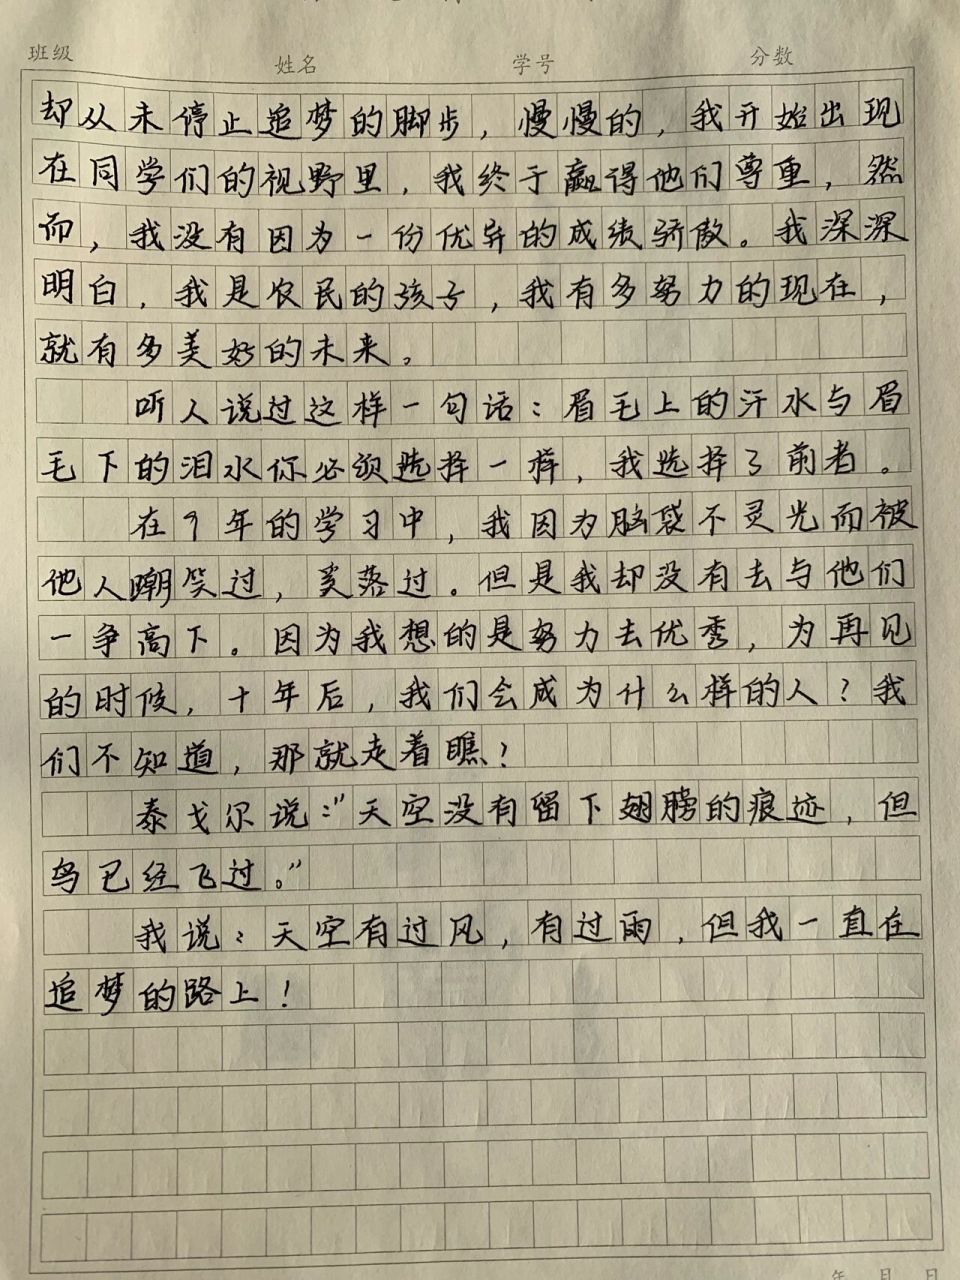 班级 姓名 学号 分数
却从未停止追梦的脚步，慢慢的，我开始出现
在同学们的视野里，我终于赢得他们尊重，然
而，我没有因为一份优异的成绩骄傲。我深深
明白，我是农民的孩子，我有多努力的现在，
就有多美好的未来。
听人说过这样一句话：眉毛上的汗水与眉
毛下的泪水你必须选择一样，我选择了前者。
在9年的学习中，我因为脑袋不灵光而被
他人嘲笑过，奚落过。但是我却没有去与他们
一争高下。因为我想的是努力去优秀，为再见
的时候，十年后，我们会成为什么样的人？我
们不知道，那就走着瞧！
泰戈尔说："天空没有留下翅膀的痕迹，但
鸟已经飞过。"
我说：天空有过风，有过雨，但我一直在
追梦的路上！
年 月 日